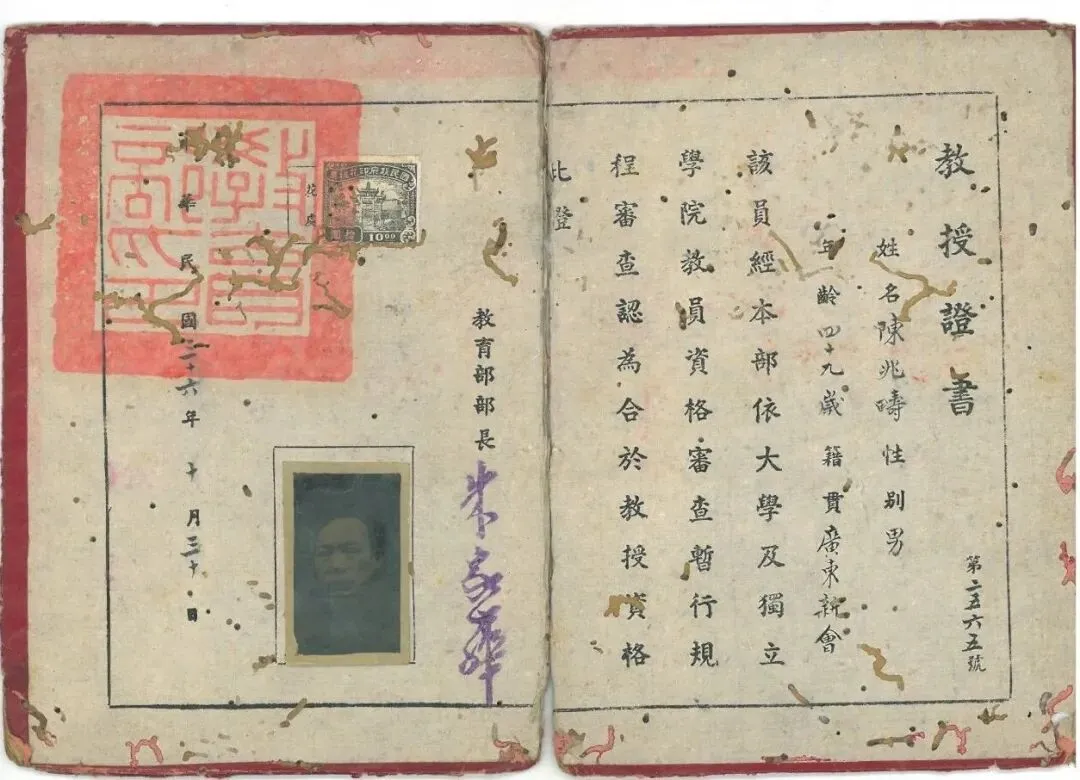 教授證書
第二五六五號
姓名陳兆疇性別男
年齡四十九歲籍貫廣東新會
該員經本部依大學及獨立
學院教員資格審查暫行規
程審查認為合於教授資格
此證
教育部部長朱家驊
10 00
華民國三十六年十月三十日